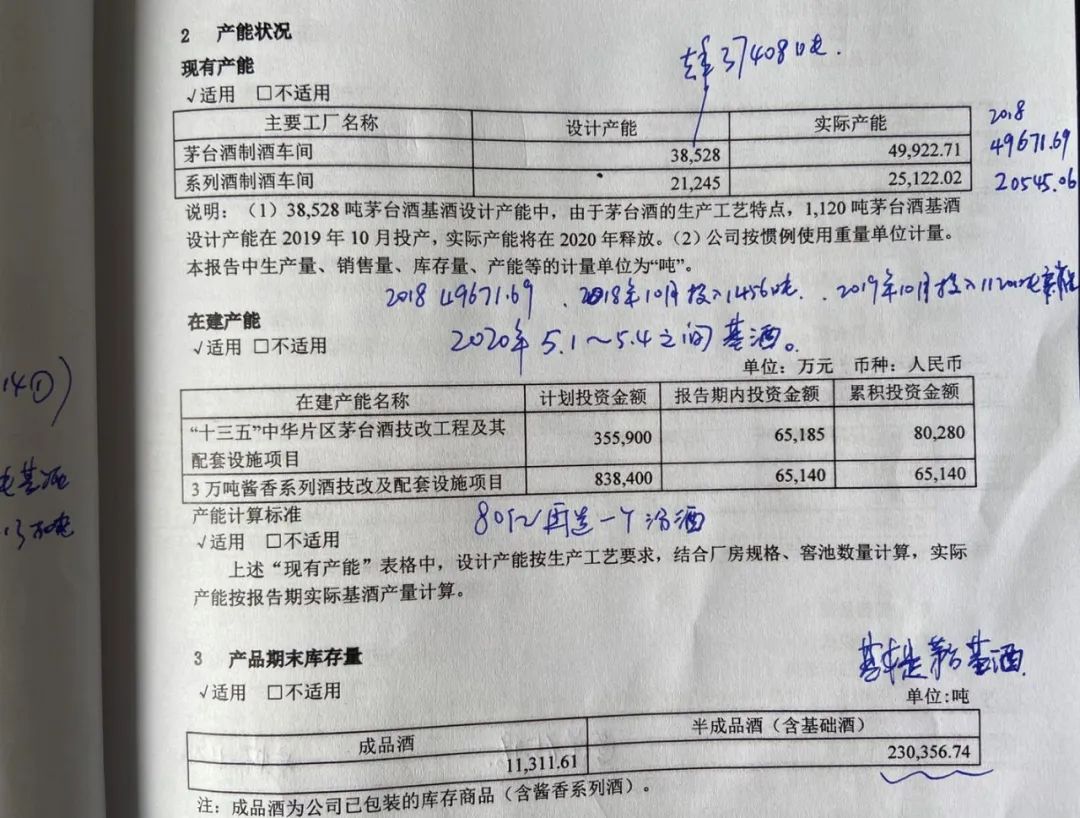 2 产能状况
现有产能
37408吨.
√适用 □不适用
主要工厂名称 设计产能 实际产能
2018
茅台酒制酒车间 38,528 49,922.71
49671.69
系列酒制酒车间 21,245 25,122.02
20545.06
说明：（1）38,528 吨茅台酒基酒设计产能中，由于茅台酒的生产工艺特点，1,120 吨茅台酒基酒
设计产能在 2019 年 10 月投产，实际产能将在 2020 年释放。（2）公司按惯例使用重量单位计量。
本报告中生产量、销售量、库存量、产能等的计量单位为“吨”。
2018 49671.69 . 2018年10月投入1456吨. . 2019年10月投入1120吨
在建产能
√适用 □不适用
2020年 5.1～5.4之间基酒。
单位：万元 币种：人民币
在建产能名称 计划投资金额 报告期内投资金额 累积投资金额
“十三五”中华片区茅台酒技改工程及其
配套设施项目 355,900 65,185 80,280
3 万吨酱香系列酒技改及配套设施项目 838,400 65,140 65,140
产能计算标准
80亿再造一个汾酒
√适用 □不适用
上述“现有产能”表格中，设计产能按生产工艺要求，结合厂房规格、窖池数量计算，实际
产能按报告期实际基酒产量计算。
14①）
吨基酒
万吨
3 产品期末库存量
基本是茅台基酒
√适用 □不适用
单位:吨
成品酒 半成品酒（含基础酒）
11,311.61 230,356.74
注：成品酒为公司已包装的库存商品（含酱香系列酒）。